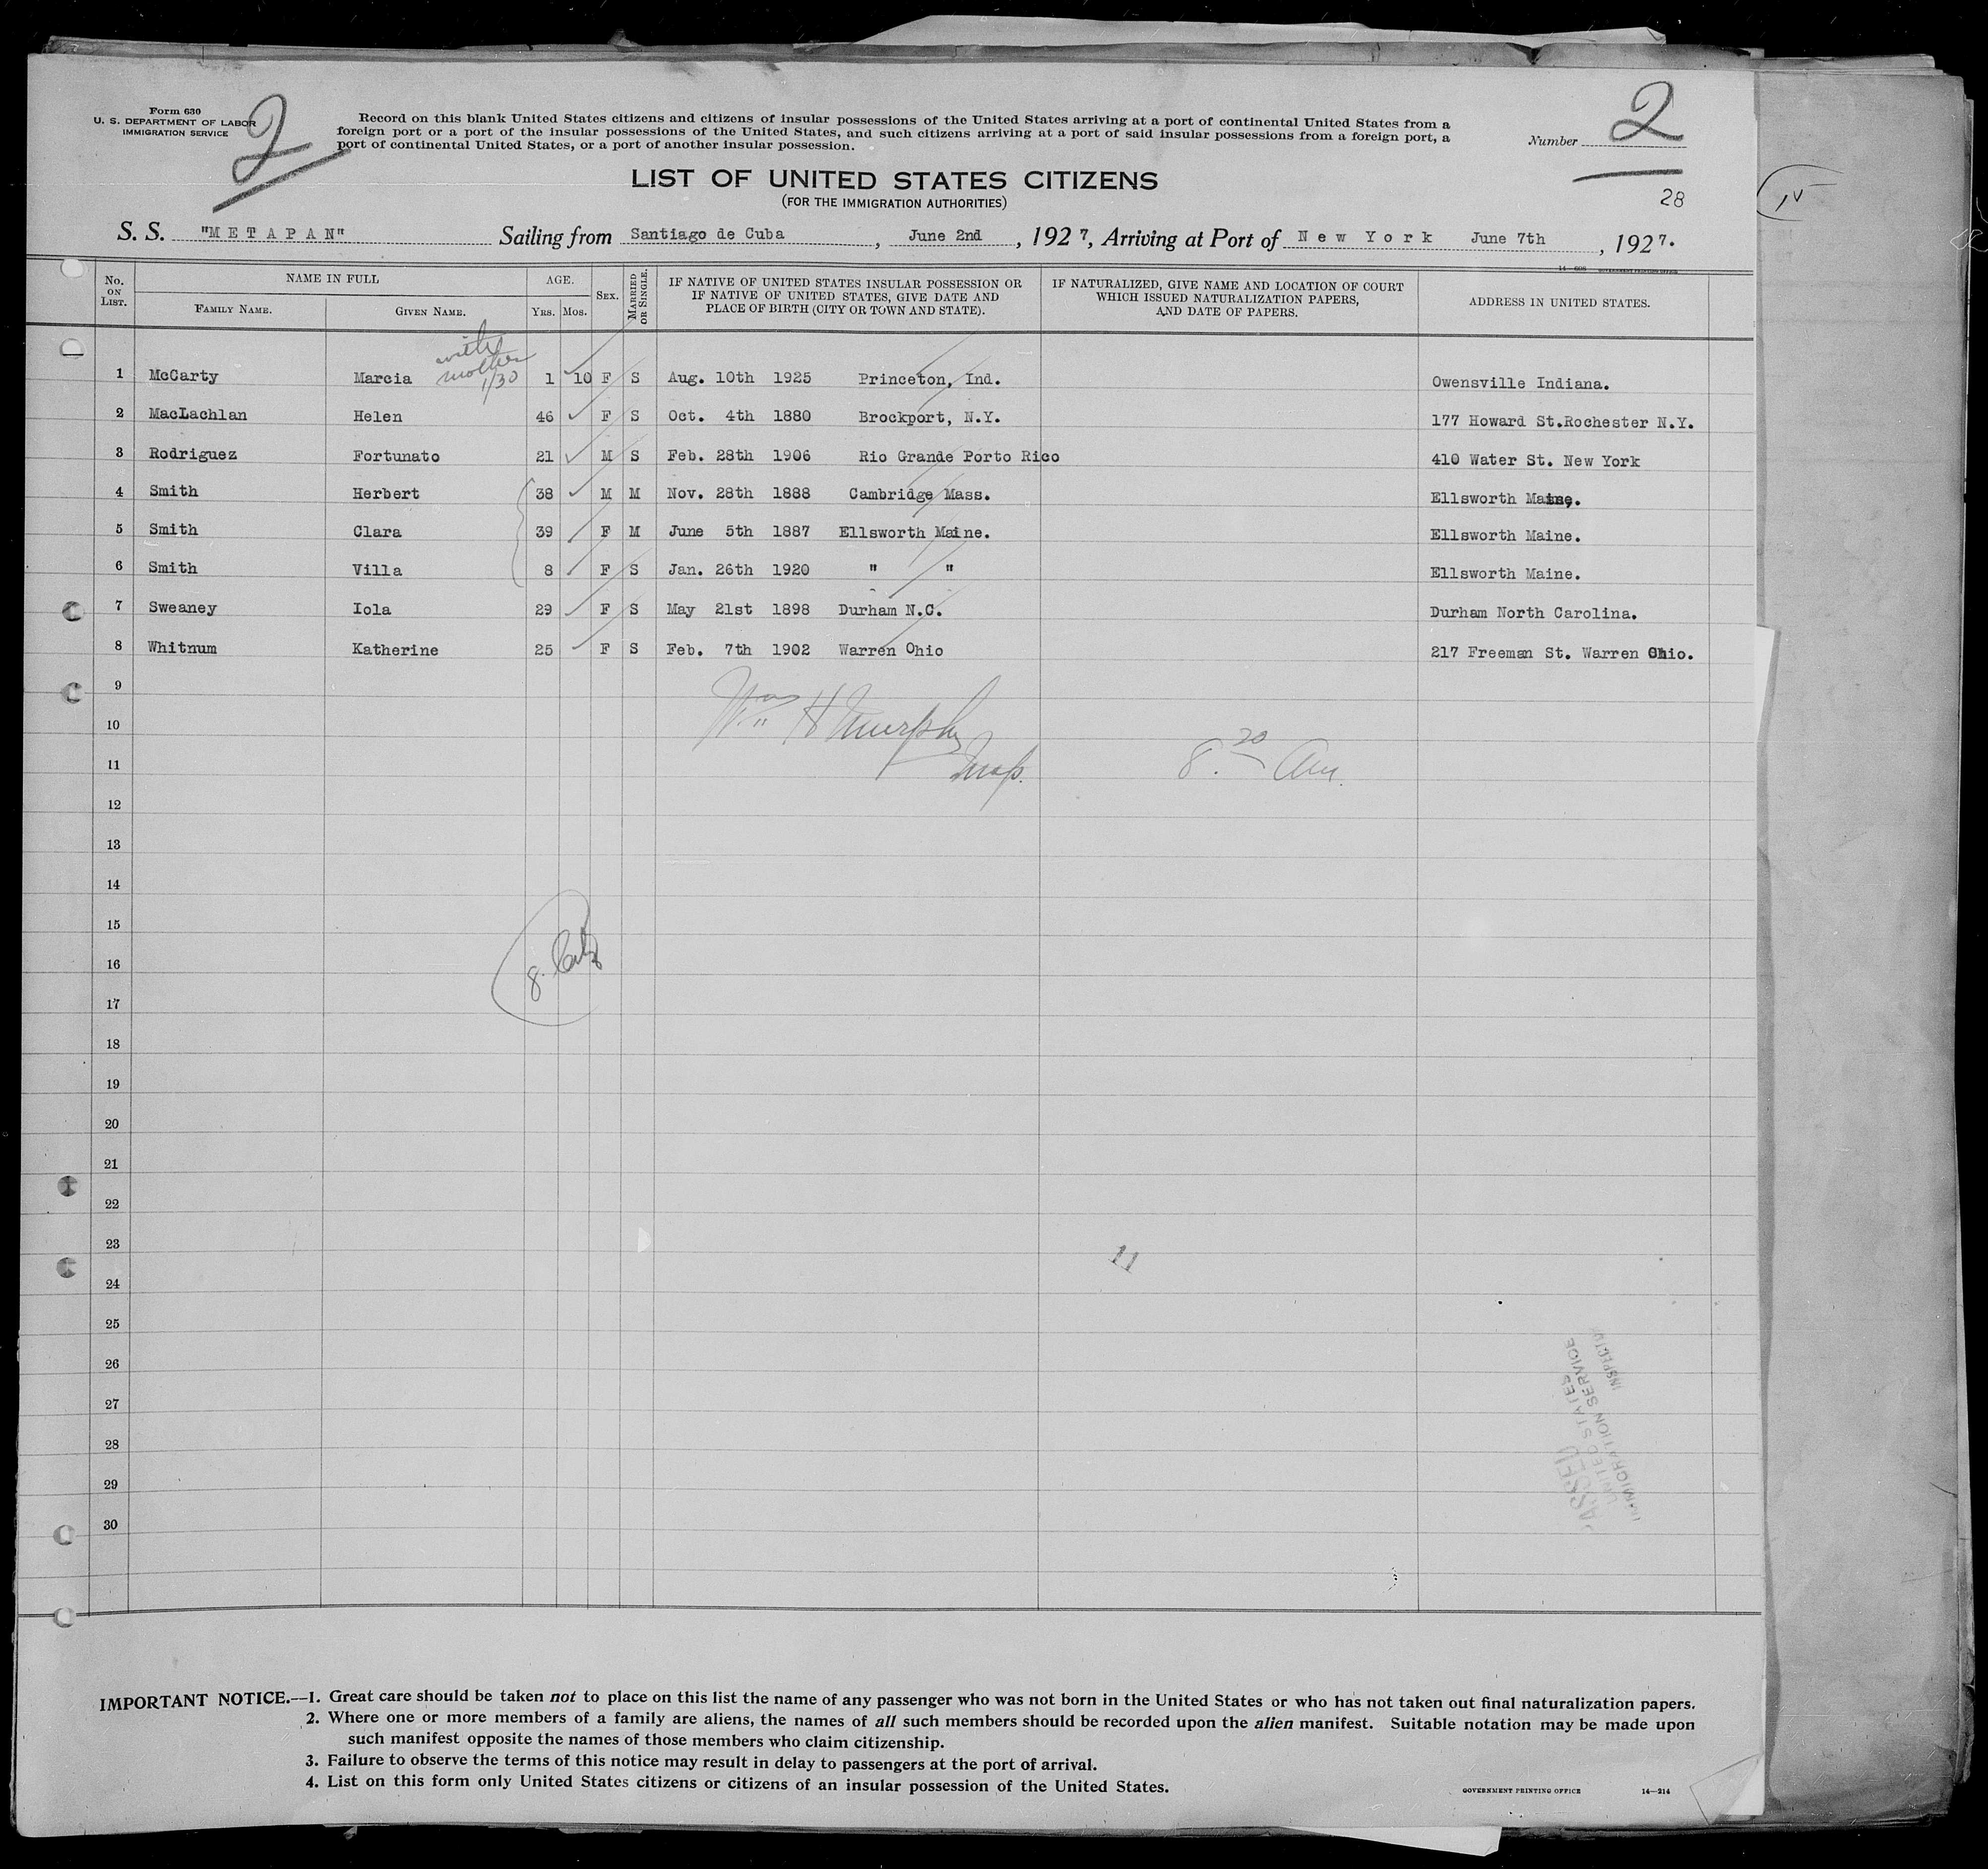 Form 630
U. S. DEPARTMENT OF LABOR
IMMIGRATION SERVICE
2
Record on this blank United States citizens and citizens of insular possessions of the United States arriving at a port of continental United States from a
foreign port or a port of the insular possessions of the United States, and such citizens arriving at a port of said insular possessions from a foreign port, a
port of continental United States, or a port of another insular possession.
Number 2
LIST OF UNITED STATES CITIZENS
(FOR THE IMMIGRATION AUTHORITIES)
28
S. S. "METAPAN" Sailing from Santiago de Cuba, June 2nd, 1927, Arriving at Port of New York June 7th, 1927.
No. ON LIST. NAME IN FULL AGE. SEX. MARRIED OR SINGLE. IF NATIVE OF UNITED STATES INSULAR POSSESSION OR IF NATIVE OF UNITED STATES, GIVE DATE AND PLACE OF BIRTH (CITY OR TOWN AND STATE). IF NATURALIZED, GIVE NAME AND LOCATION OF COURT WHICH ISSUED NATURALIZATION PAPERS, AND DATE OF PAPERS. ADDRESS IN UNITED STATES.
FAMILY NAME. GIVEN NAME. YRS. MOS.
with
mother
1/30
1 McCarty Marcia 1 10 F S Aug. 10th 1925 Princeton, Ind. Owensville Indiana.
2 MacLachlan Helen 46 F S Oct. 4th 1880 Brockport, N.Y. 177 Howard St.Rochester N.Y.
3 Rodriguez Fortunato 21 M S Feb. 28th 1906 Rio Grande Porto Rico 410 Water St. New York
4 Smith Herbert 38 M M Nov. 28th 1888 Cambridge Mass. Ellsworth Maine.
5 Smith Clara 39 F M June 5th 1887 Ellsworth Maine. Ellsworth Maine.
6 Smith Villa 8 F S Jan. 26th 1920 " " Ellsworth Maine.
7 Sweaney Iola 29 F S May 21st 1898 Durham N.C. Durham North Carolina.
8 Whitnum Katherine 25 F S Feb. 7th 1902 Warren Ohio 217 Freeman St. Warren Ohio.
9
Wm H Murphy
10
Insp. 8.20 Am
11
12
13
14
15
16
17
18
19
20
21
22
23
11
24
25
26
27
28
29
30
UNITED STATES
IMMIGRATION SERVICE
INSPECTOR
IMPORTANT NOTICE.—1. Great care should be taken not to place on this list the name of any passenger who was not born in the United States or who has not taken out final naturalization papers.
2. Where one or more members of a family are aliens, the names of all such members should be recorded upon the alien manifest. Suitable notation may be made upon
such manifest opposite the names of those members who claim citizenship.
3. Failure to observe the terms of this notice may result in delay to passengers at the port of arrival.
4. List on this form only United States citizens or citizens of an insular possession of the United States.
GOVERNMENT PRINTING OFFICE 14—214